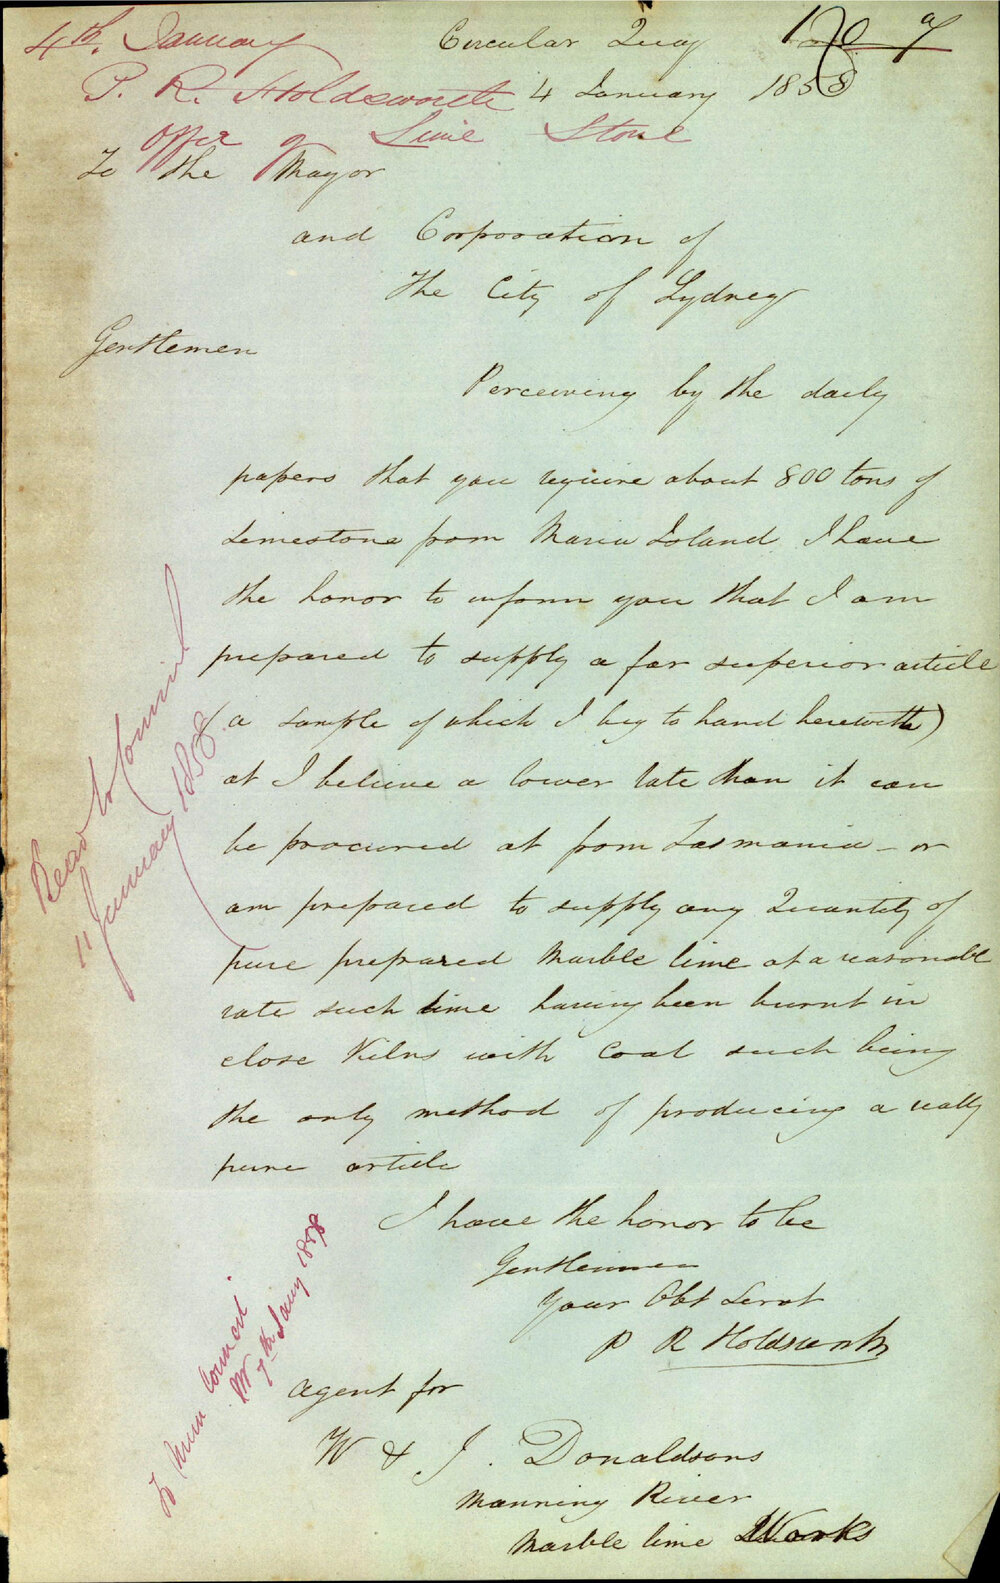 4th. January
P. R. Holdsworth
Offer of Lime Stone
Circular Quay
4 January 1858
To the Mayor
and Corporation of
The City of Sydney
Gentlemen
Perceiving by the daily
papers that you require about 800 tons of
Limestone from Maria Island I have
the honor to inform you that I am
prepared to supply a far superior article
(a sample of which I beg to hand herewith)
at I believe a lower rate than it can
be procured at from Tasmania - or
am prepared to supply any Quantity of
pure prepared Marble lime at a reasonable
rate such lime having been burnt in
close Kilns with Coal such being
the only method of producing a really
pure article
I have the honor to be
Gentlemen
Your Obt Servt
P R Holdsworth
Agent for
W & J. Donaldsons
Manning River
Marble lime Works
Read to Council
11 January 1858
To Mun Council
7th Jany 1858